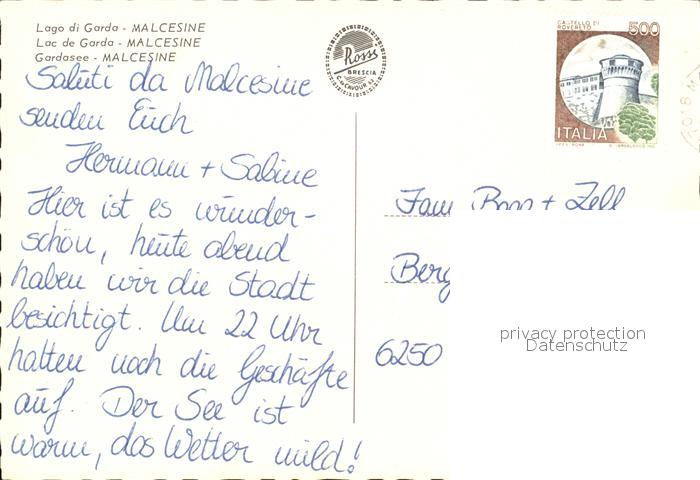 Lago di Garda - MALCESINE
Lac de Garda - MALCESINE
Gardasee - MALCESINE
Saluti da Malcesine
senden Euch
Hermann + Sabine
Hier ist es wunder-
schön, heute abend
haben wir die Stadt
besichtigt. Um 22 Uhr
hatten noch die Geschäfte
auf. Der See ist
warm, das Wetter mild!
Rossi
BRESCIA
CASTELLO DI
ROVERETO
500
ITALIA
Fam + Zell
Berg
6250
privacy protection
Datenschutz